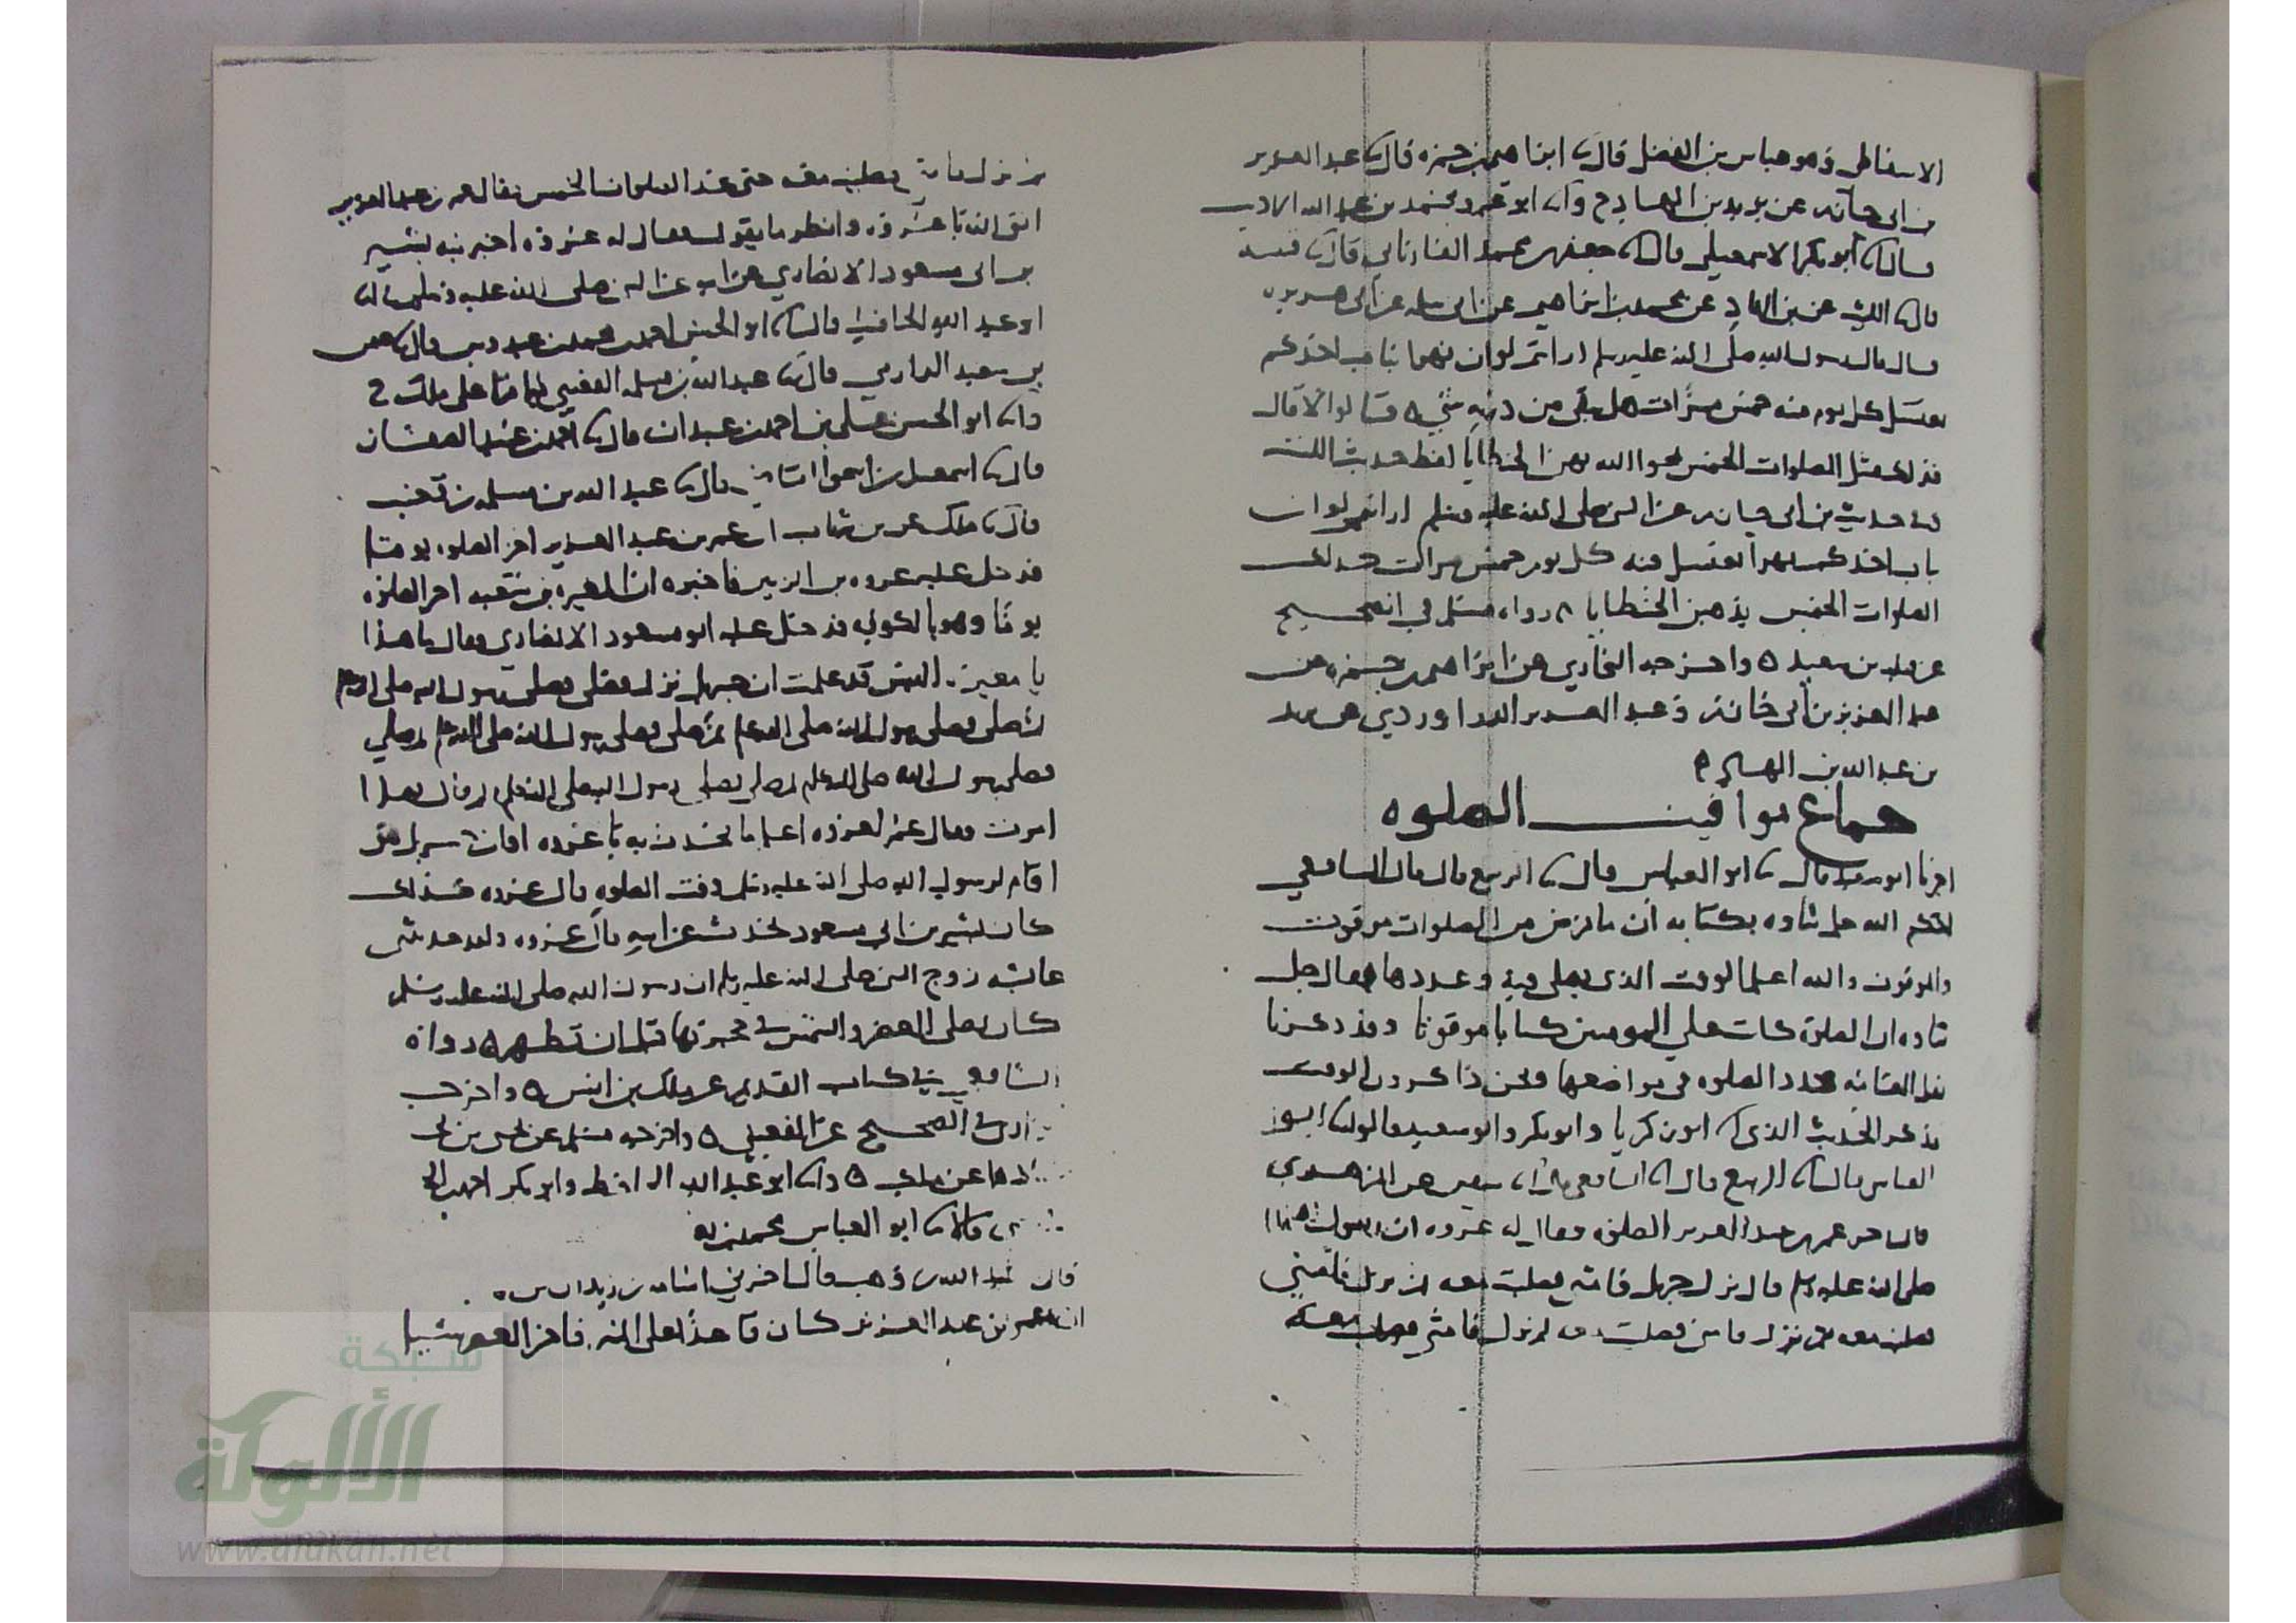 الاسفاطى وهو عباس بن الفضل قال ثنا ابراهيم بن حمزه قال ثنا عبد العزيز
بن ابى حازم عن يزيد بن الهاد ح وانا ابو عمرو محمد بن عبد الله الاديب
قال انا ابو بكر الاسمعيلي قال ثنا جعفر بن محمد الفاريابي قال ثنا قتيبه
قال ثنا الليث عن بن الهاد عن محمد بن ابراهيم عن ابى سلمه عن ابى هريره
قال قال رسول الله صلى الله عليه وسلم ارايتم لو ان نهرا بباب احدكم
يغتسل كل يوم منه خمس مرات هل يبقى من درنه شي ه قالوا لا قال
فذلك مثل الصلوات الخمس يمحوا الله بهن الخطايا لفظ حديث الليث
وفي حديث بن ابي حازم عن النبي صلى الله عليه وسلم ارايتم لو ان
باب احدكم نهرا يغتسل منه كل يوم خمس مرات كذلك
الصلوات الخمس يذهبن الخطايا ه رواه مسلم في الصحيح
عن قتيبه بن سعيد ه واخرجه البخاري عن ابراهيم بن حمزه عن
عبد العزيز بن ابى حازم وعبد العزيز الدراوردي عن يزيد
بن عبد الله بن الهاد ه
جماع مواقيت الصلوه
اخبرنا ابو سعيد قال ثنا ابو العباس قال انا الربيع قال قال الشافعي
احكم الله جل ثناوه بكتابه ان ما فرض من الصلوات موقوت
والموقوت والله اعلم الوقت الذى يصلى فيه وعددها فقال جل
ثناوه ان الصلوة كانت على المومنين كتابا موقوتا وقد ذكرنا
نقل العامه عدد الصلوه في مواضعها ونحن ذاكرون الوقت
فذكر الحديث الذى انا ابو زكريا وابو بكر وابو سعيد قالوا ثنا ابو
العباس قال انا الربيع قال انا الشافعي قال انا سفين عن الزهري
قال اخر عمر بن عبد العزيز الصلوه فقال له عروه ان رسول الله
صلى الله عليه وسلم قال نزل جبريل فامني فصليت معه ثم نزل فامني
فصليت معه ثم نزل فامني فصليت معه ثم نزل فامني فصليت معه
ثم نزل فامني فصليت معه حتى عد الصلوات الخمس فقال عمر بن عبد العزيز
اتق الله يا عروه وانظر ما تقول فقال له عروه اخبرنيه بشير
بن ابى مسعود الانصاري عن ابيه عن النبي صلى الله عليه وسلم انا
ابو عبد الله الحافظ قال انا ابو الحسن احمد بن محمد بن عبدوس قال ثنا عثمن
بن سعيد الدارمي قال ثنا عبد الله بن مسلمه القعنبي فيما قرا على ملك ح
وانا ابو الحسن على بن احمد بن عبدان قال انا احمد بن عبيد الصفار
قال ثنا اسمعيل بن اسحق القاضي قال ثنا عبد الله بن مسلمه بن قعنب
قال ثنا ملك عن بن شهاب ان عمر بن عبد العزيز اخر الصلوه يوما
فدخل عليه عروه بن الزبير فاخبره ان المغيره بن شعبه اخر الصلوه
يوما وهو بالكوفه فدخل عليه ابو مسعود الانصاري فقال ما هذا
يا مغيره اليس قد علمت ان جبريل نزل فصلى فصلى رسول الله صلى الله عليه وسلم
ثم صلى فصلى رسول الله صلى الله عليه وسلم ثم صلى فصلى رسول الله صلى الله عليه وسلم ثم صلى
فصلى رسول الله صلى الله عليه وسلم ثم صلى فصلى رسول الله صلى الله عليه وسلم ثم قال بهذا
امرت فقال عمر لعروه اعلم ما تحدث به يا عروه اوان جبريل هو
اقام لرسول الله صلى الله عليه وسلم وقت الصلوه قال عروه كذلك
كان بشير بن ابي مسعود يحدث عن ابيه قال عروه ولقد حدثتني
عائشه زوج النبي صلى الله عليه وسلم ان رسول الله صلى الله عليه وسلم
كان يصلى العصر والشمس في حجرتها قبل ان تظهر ه رواه
الشافعي في كتاب القديم عن ملك بن انس ه واخرجه
في الصحيح عن القعنبي ه واخرجه مسلم عن يحيى بن يحى
كلاهما عن ملك ه وانا ابو عبد الله الحافظ وابو بكر احمد بن الحسن
قالا ثنا ابو العباس محمد بن
قال عبد الله بن وهب قال اخبرني اسامه بن زيد ان بن
ان عمر بن عبد العزيز كان قاعدا على المنبر فاخر العصر شيا
شبكة
الألوكة
www.alukah.net